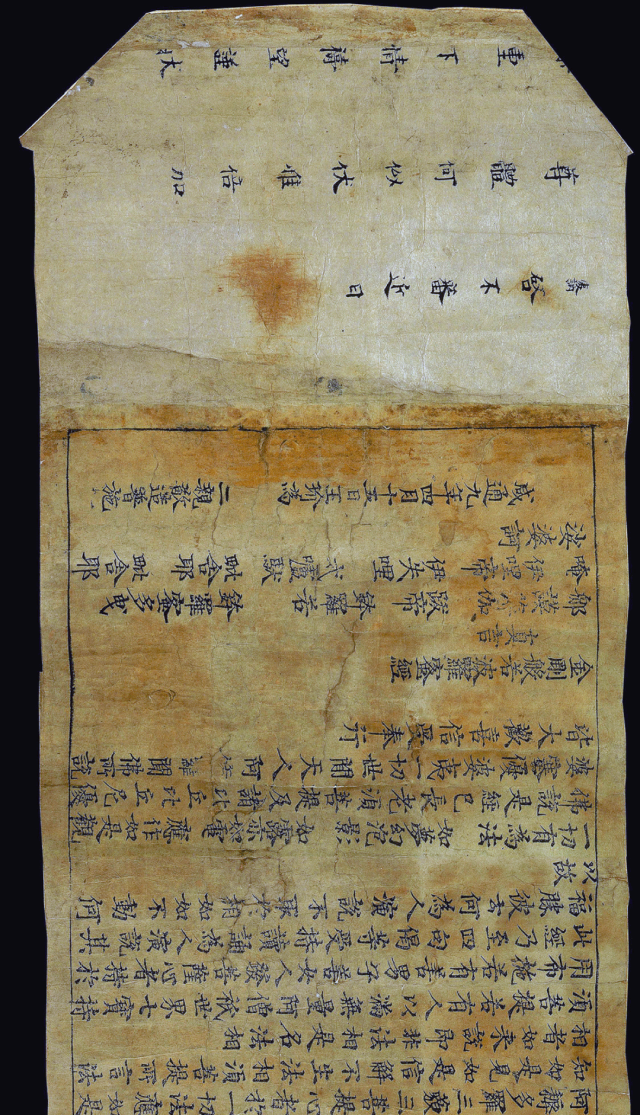 阿耨多羅三藐三菩提心者於一切法應如是
知如是見如是信解不生法相須菩提所言法
相者如來說即非法相是名法相
須菩提若有人以滿無量阿僧祇世界七寶持
用布施若有善男子善女人發菩薩心者持於
此經乃至四句偈等受持讀誦為人演說其
福勝彼云何為人演說不取於相如如不動何
以故
一切有為法如夢幻泡影如露亦如電應作如是觀
佛說是經已長老須菩提及諸比丘比丘尼優
婆塞優婆夷一切世間天人阿修羅聞佛所說
皆大歡喜信受奉行
金剛般若波羅蜜經
真言
那謨薄伽跋帝鉢羅若鉢羅蜜多曳
唵伊哩帝伊失哩戍嚧馱毗舍耶毗舍耶
娑婆訶
咸通九年四月十五日王玠為二親敬造普施
啓不審近日
尊體何似伏惟倍加
重下情禱望謹狀